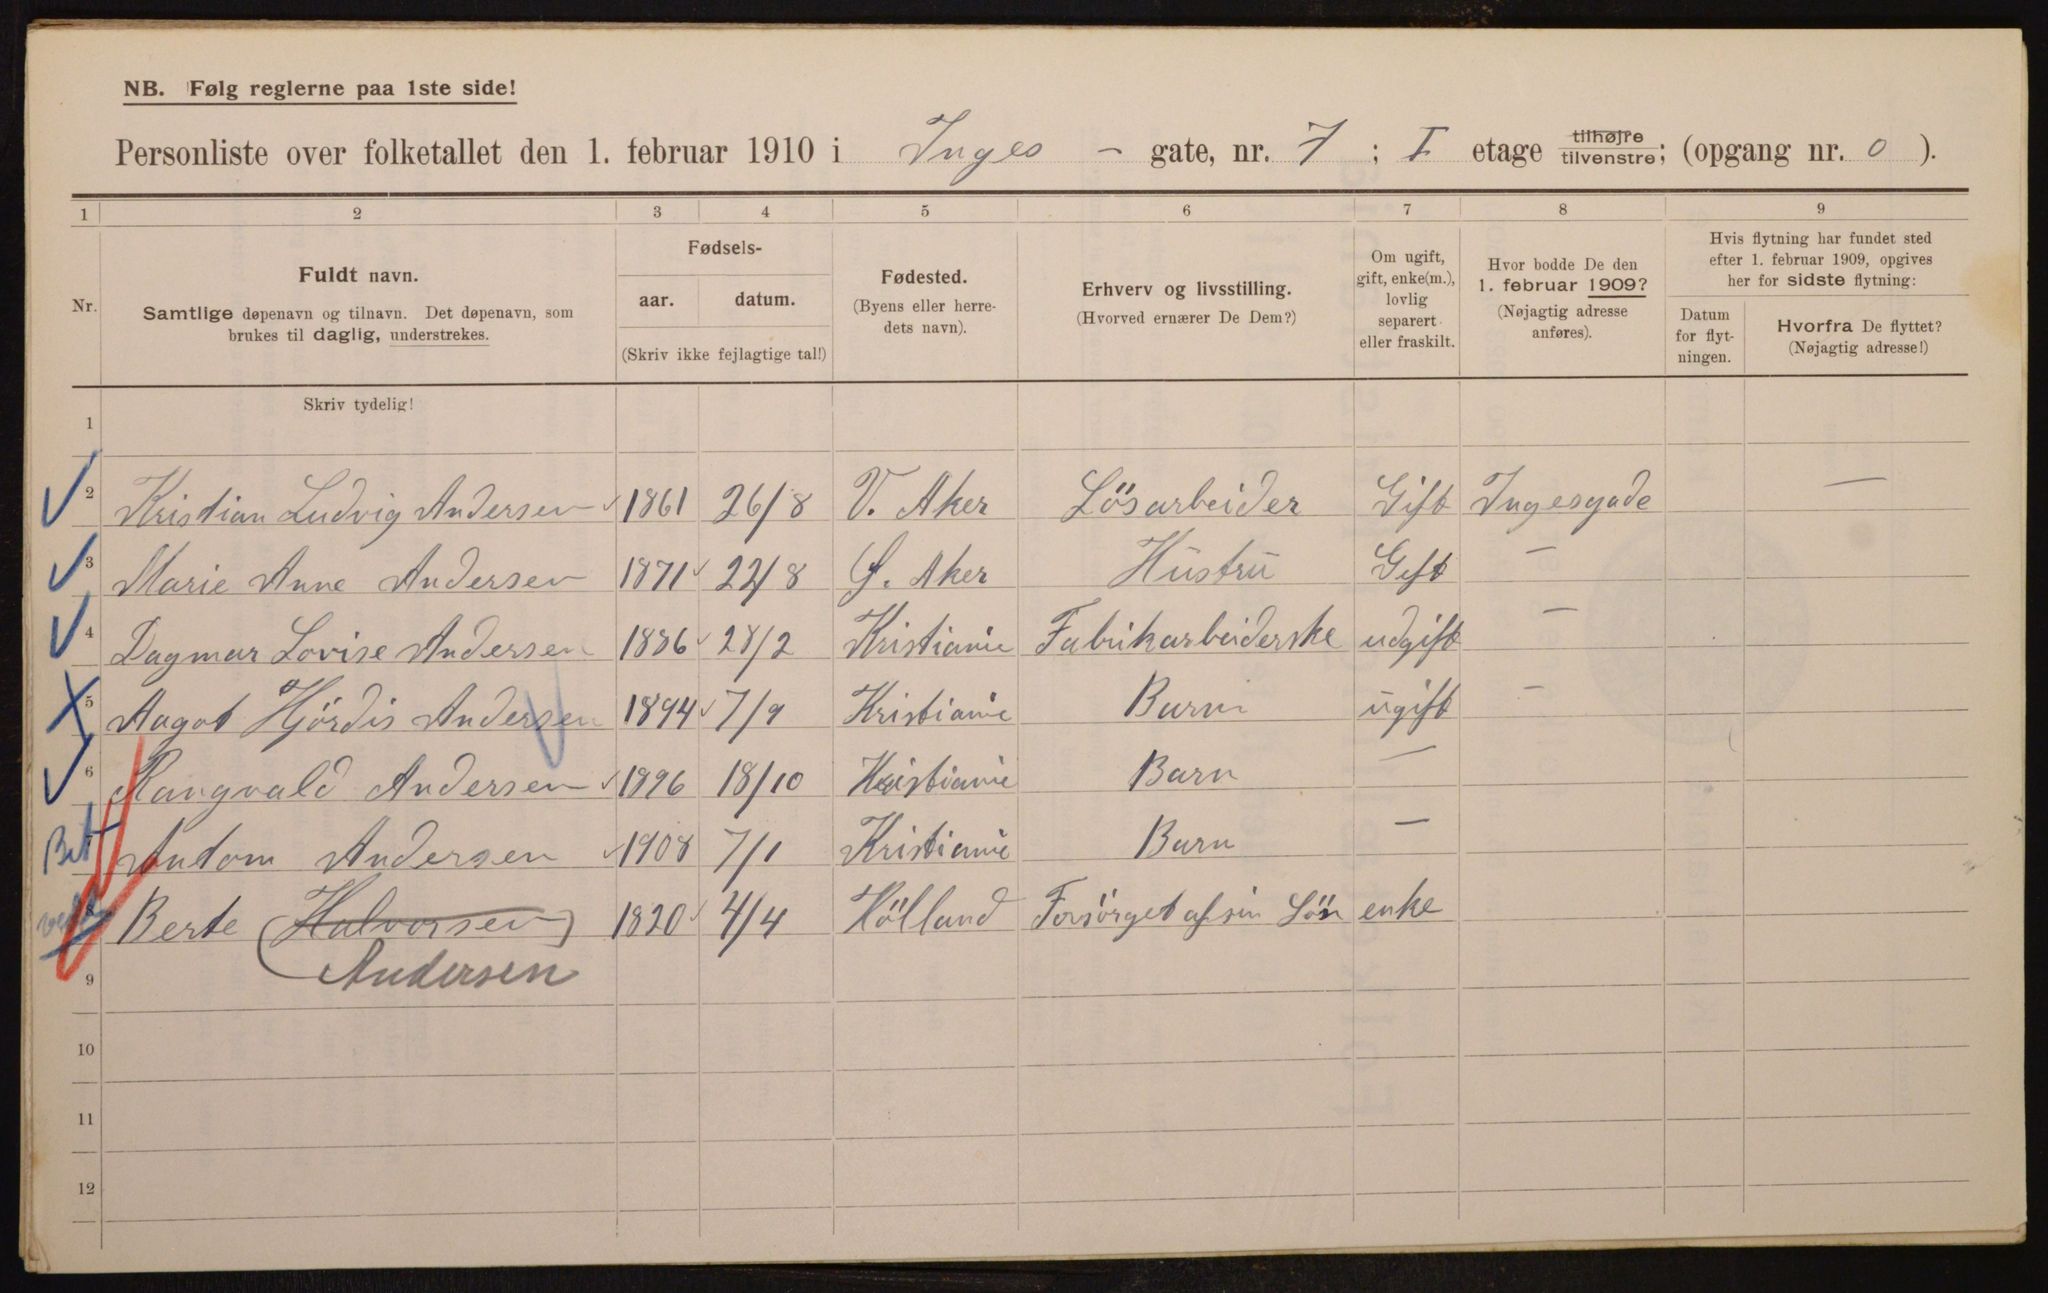 NB. Følg reglerne paa 1ste side!
Personliste over folketallet den 1. februar 1910 i Inges - gate, nr. 7 ; I etage tilhøjre tilvenstre; (opgang nr. 0 ).
1 2 3 4 5 6 7 8 9
Nr.
Fuldt navn.
Samtlige døpenavn og tilnavn. Det døpenavn, som
brukes til daglig, understrekes.
Fødsels-
aar. datum.
(Skriv ikke fejlagtige tal!)
Fødested.
(Byens eller herre-
dets navn).
Erhverv og livsstilling.
(Hvorved ernærer De Dem?)
Om ugift,
gift, enke(m.),
lovlig
separert
eller fraskilt.
Hvor bodde De den
1. februar 1909?
(Nøjagtig adresse
anføres).
Hvis flytning har fundet sted
efter 1. februar 1909, opgives
her for sidste flytning:
Datum
for flyt-
ningen.
Hvorfra De flyttet?
(Nøjagtig adresse!)
Skriv tydelig!
1
2 Kristian Ludvig Andersen 1861 26/8 V. Aker Lösarbeider Gift Ingesgade —
3 Marie Anne Andersen 1871 22/8 Ø. Aker Hustru Gift —
4 Dagmar Lovise Andersen 1886 28/2 Kristianie Fabrikarbeiderske udgift —
5 Aagot Hjördis Andersen 1894 7/9 Kristianie Barn ugift —
6 Rangvald Andersen 1896 18/10 Kristianie Barn —
Antom Andersen 1908 7/1 Kristianie Barn —
8 Berte (Halvorsen) 1820 4/4 Hölland Forsörget af sin Sön enke
9 Andersen
10
11
12